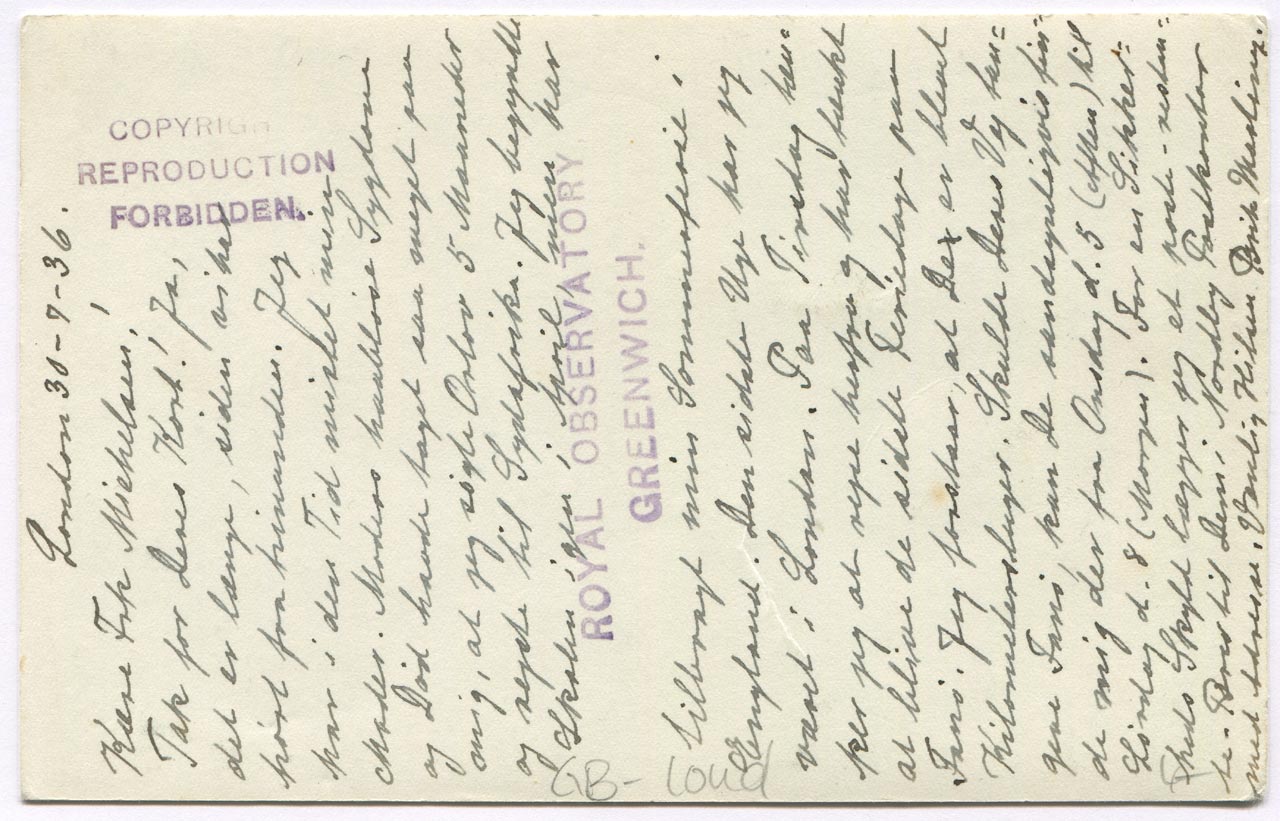 COPYRIGH
REPRODUCTION
FORBIDDEN.
ROYAL OBSERVATORY,
GREENWICH.
London 30-7-36.
Kære Frk Michelsen!
Tak for Deres Kort! Ja,
det er længe, siden vi har
hørt fra hinanden. Jeg
har i den Tid mistet min
Moder. Moders Sygdom
og Død havde taget saa meget paa
mig, at jeg søgte Orlov 5 Maaneder
og rejste til Sydafrika. Jeg begyndte
Skolen igen i April, men har
tilbragt min Sommerferie i
England. Den sidste Uge har jeg
været i London. Paa Tirsdag tæn-
ker jeg at rejse herfra og har tænkt
at blive de sidste Feriedage paa
Fanø. Jeg forstaar, at De er blevet
Kilometersluger. Skulde Deres Vej læn-
gere Fanø, kan De sandsynligvis fin-
de mig der fra Onsdag d. 5 (Aften) til
Lørdag d. 8 (Morgen). For en Sikker-
heds Skyld lægger jeg et poste-restan-
te-Brev til Dem i Nordby Postkontor
med Adresse. Venlig Hilsen
GB- Lond